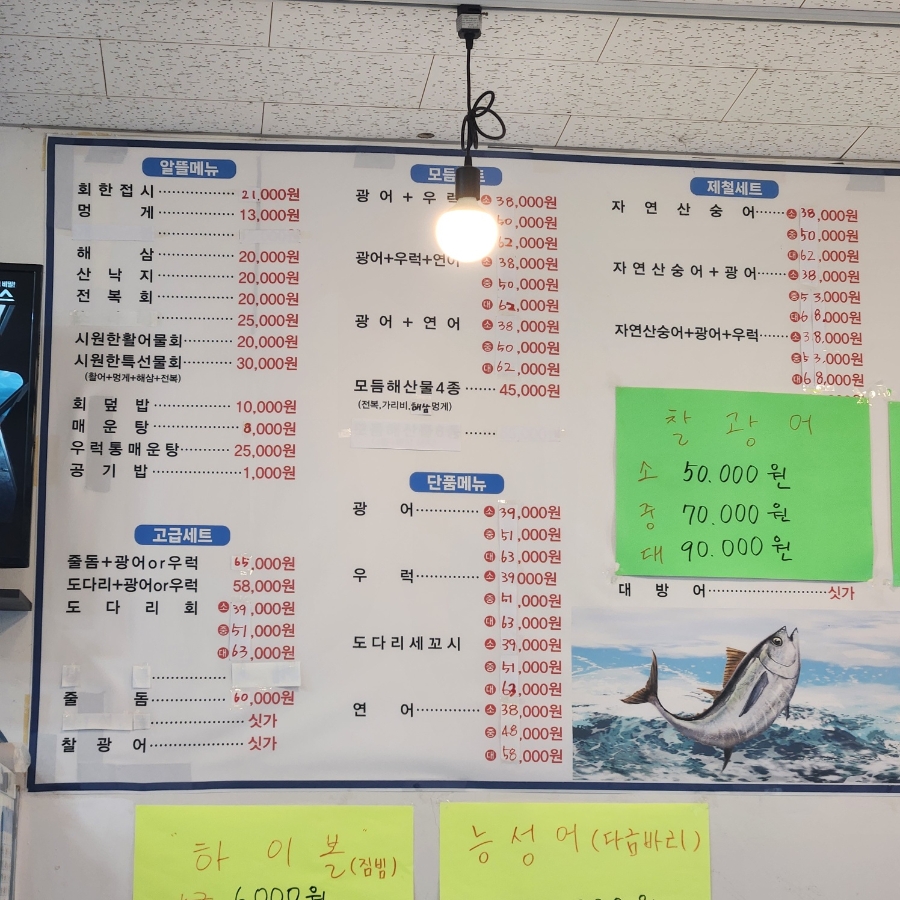 알뜰메뉴
회한접시 21,000원
멍게 13,000원
해삼 20,000원
산낙지 20,000원
전복회 20,000원
25,000원
시원한활어물회 20,000원
시원한특선물회 30,000원
(활어+멍게+해삼+전복)
회덮밥 10,000원
매운탕 8,000원
우럭통매운탕 25,000원
공기밥 1,000원
고급세트
줄돔+광어or우럭 65,000원
도다리+광어or우럭 58,000원
도다리회 소 39,000원
중 51,000원
대 63,000원
줄돔 60,000원
싯가
찰광어 싯가
모듬
광어+우럭 소 38,000원
50,000원
62,000원
광어+우럭+연어 소 38,000원
중 50,000원
대 62,000원
광어+연어 소 38,000원
중 50,000원
대 62,000원
모듬해산물4종 45,000원
(전복,가리비,해삼,멍게)
단품메뉴
광어 소 39,000원
중 51,000원
대 63,000원
우럭 소 39000원
중 51,000원
대 63,000원
도다리세꼬시 소 39,000원
중 51,000원
대 63,000원
연어 소 38,000원
중 48,000원
대 58,000원
제철세트
자연산숭어 소 38,000원
중 50,000원
대 62,000원
자연산숭어+광어 소 38,000원
중 53,000원
대 68,000원
자연산숭어+광어+우럭 소 38,000원
중 53,000원
대 68,000원
찰광어
소 50.000원
중 70.000원
대 90.000원
대방어 싯가
"하이볼"(짐빔)
6000원
능성어(다금바리)